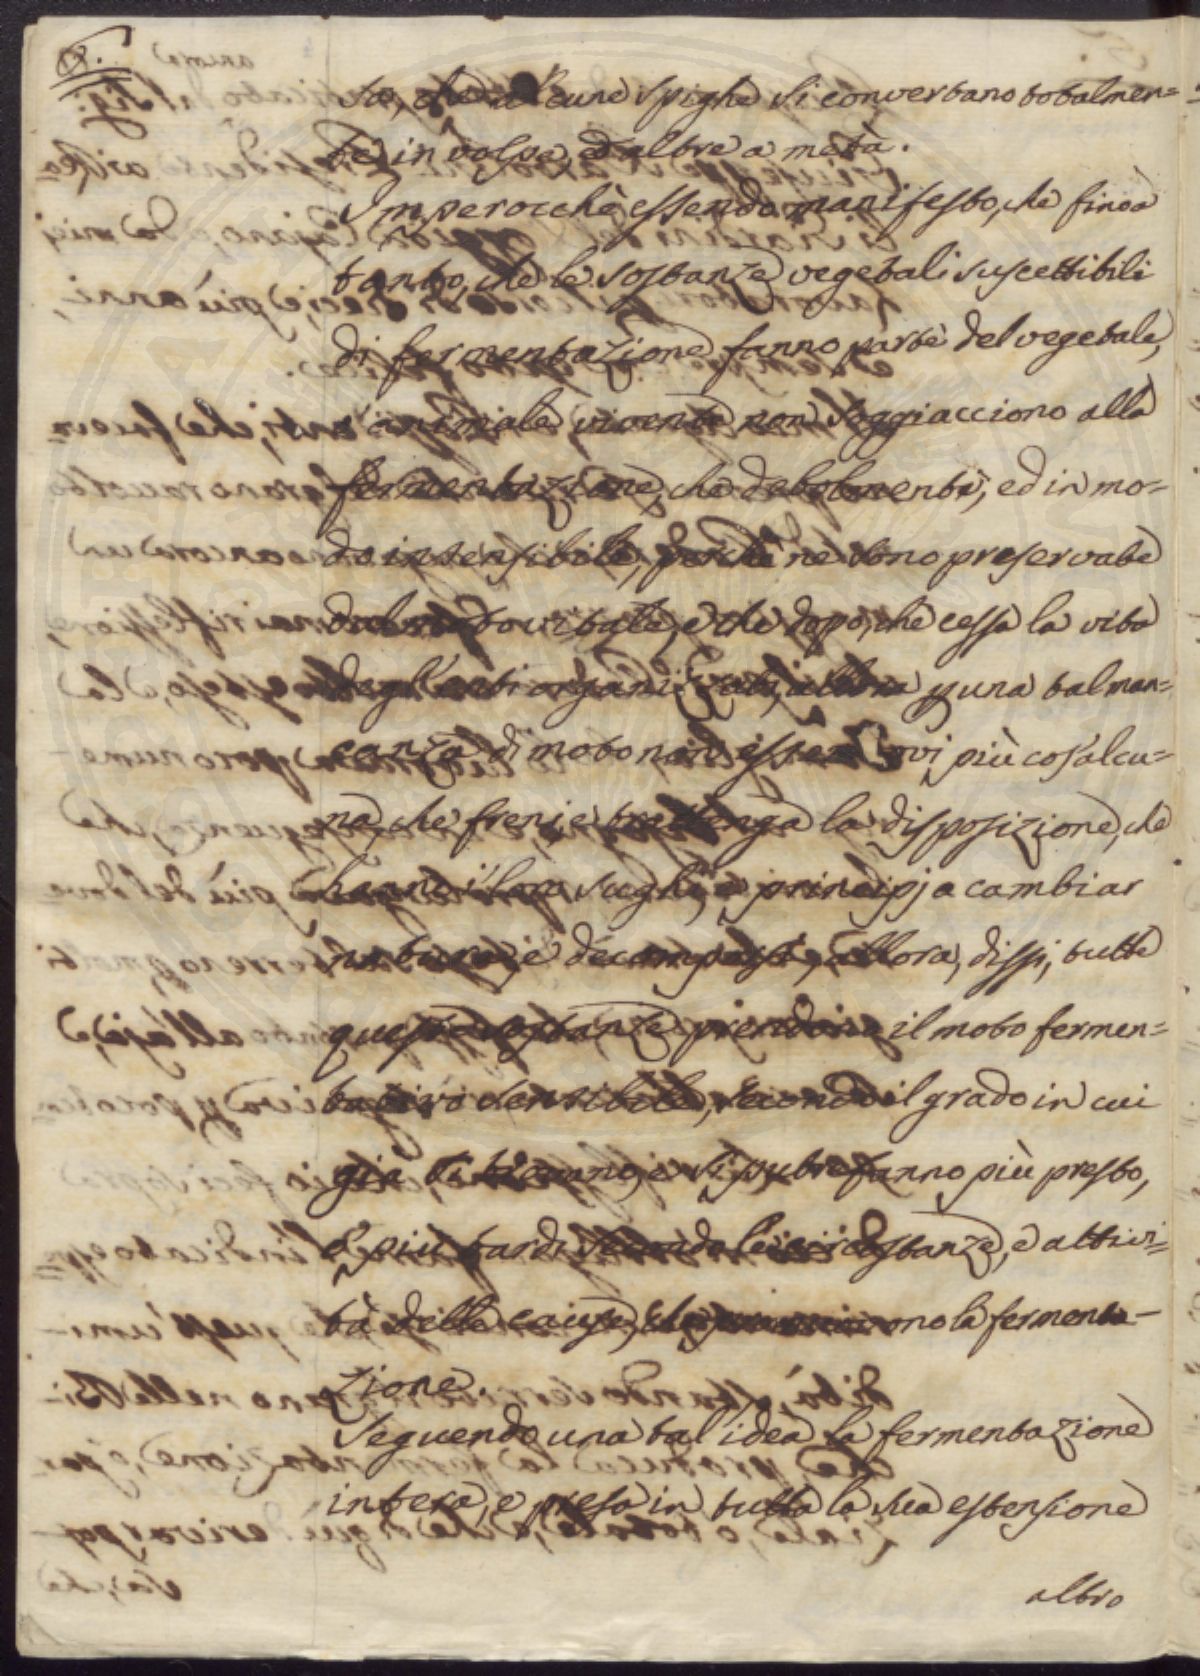 sa, che alcune spighe si convertano totalmen=
te in volpe, ed altre a metà.
Imperocchè essendo manifesto, che fino a
tanto, che le sostanze vegetali suscettibili
di fermentazione fanno parte del vegetale,
animale vivente non soggiacciono alla
fermentazione, che debolmente, ed in mo=
do insensibile, perchè ne sono preservate
dal moto vitale, e che dopo, che cessa la vita
degl'enti organizzati, allora p una tal man=
canza di moto non essendovi più cos'alcu=
na, che freni, e trattenga la disposizione, che
hanno i loro sughi, e principj a cambiar
natura, e decomporsi, allora, dissi, tutte
queste sostanze prendono il moto fermen=
tativo sensibile, secondo il grado in cui
già si trovano, e si putrefanno più presto,
o più tardi secondo le circostanze, e attivi=
tà delle cause, che promuovono la fermenta-
zione.
Seguendo una tal idea la fermentazione
intera, e presa in tutta la sua estensione
altro